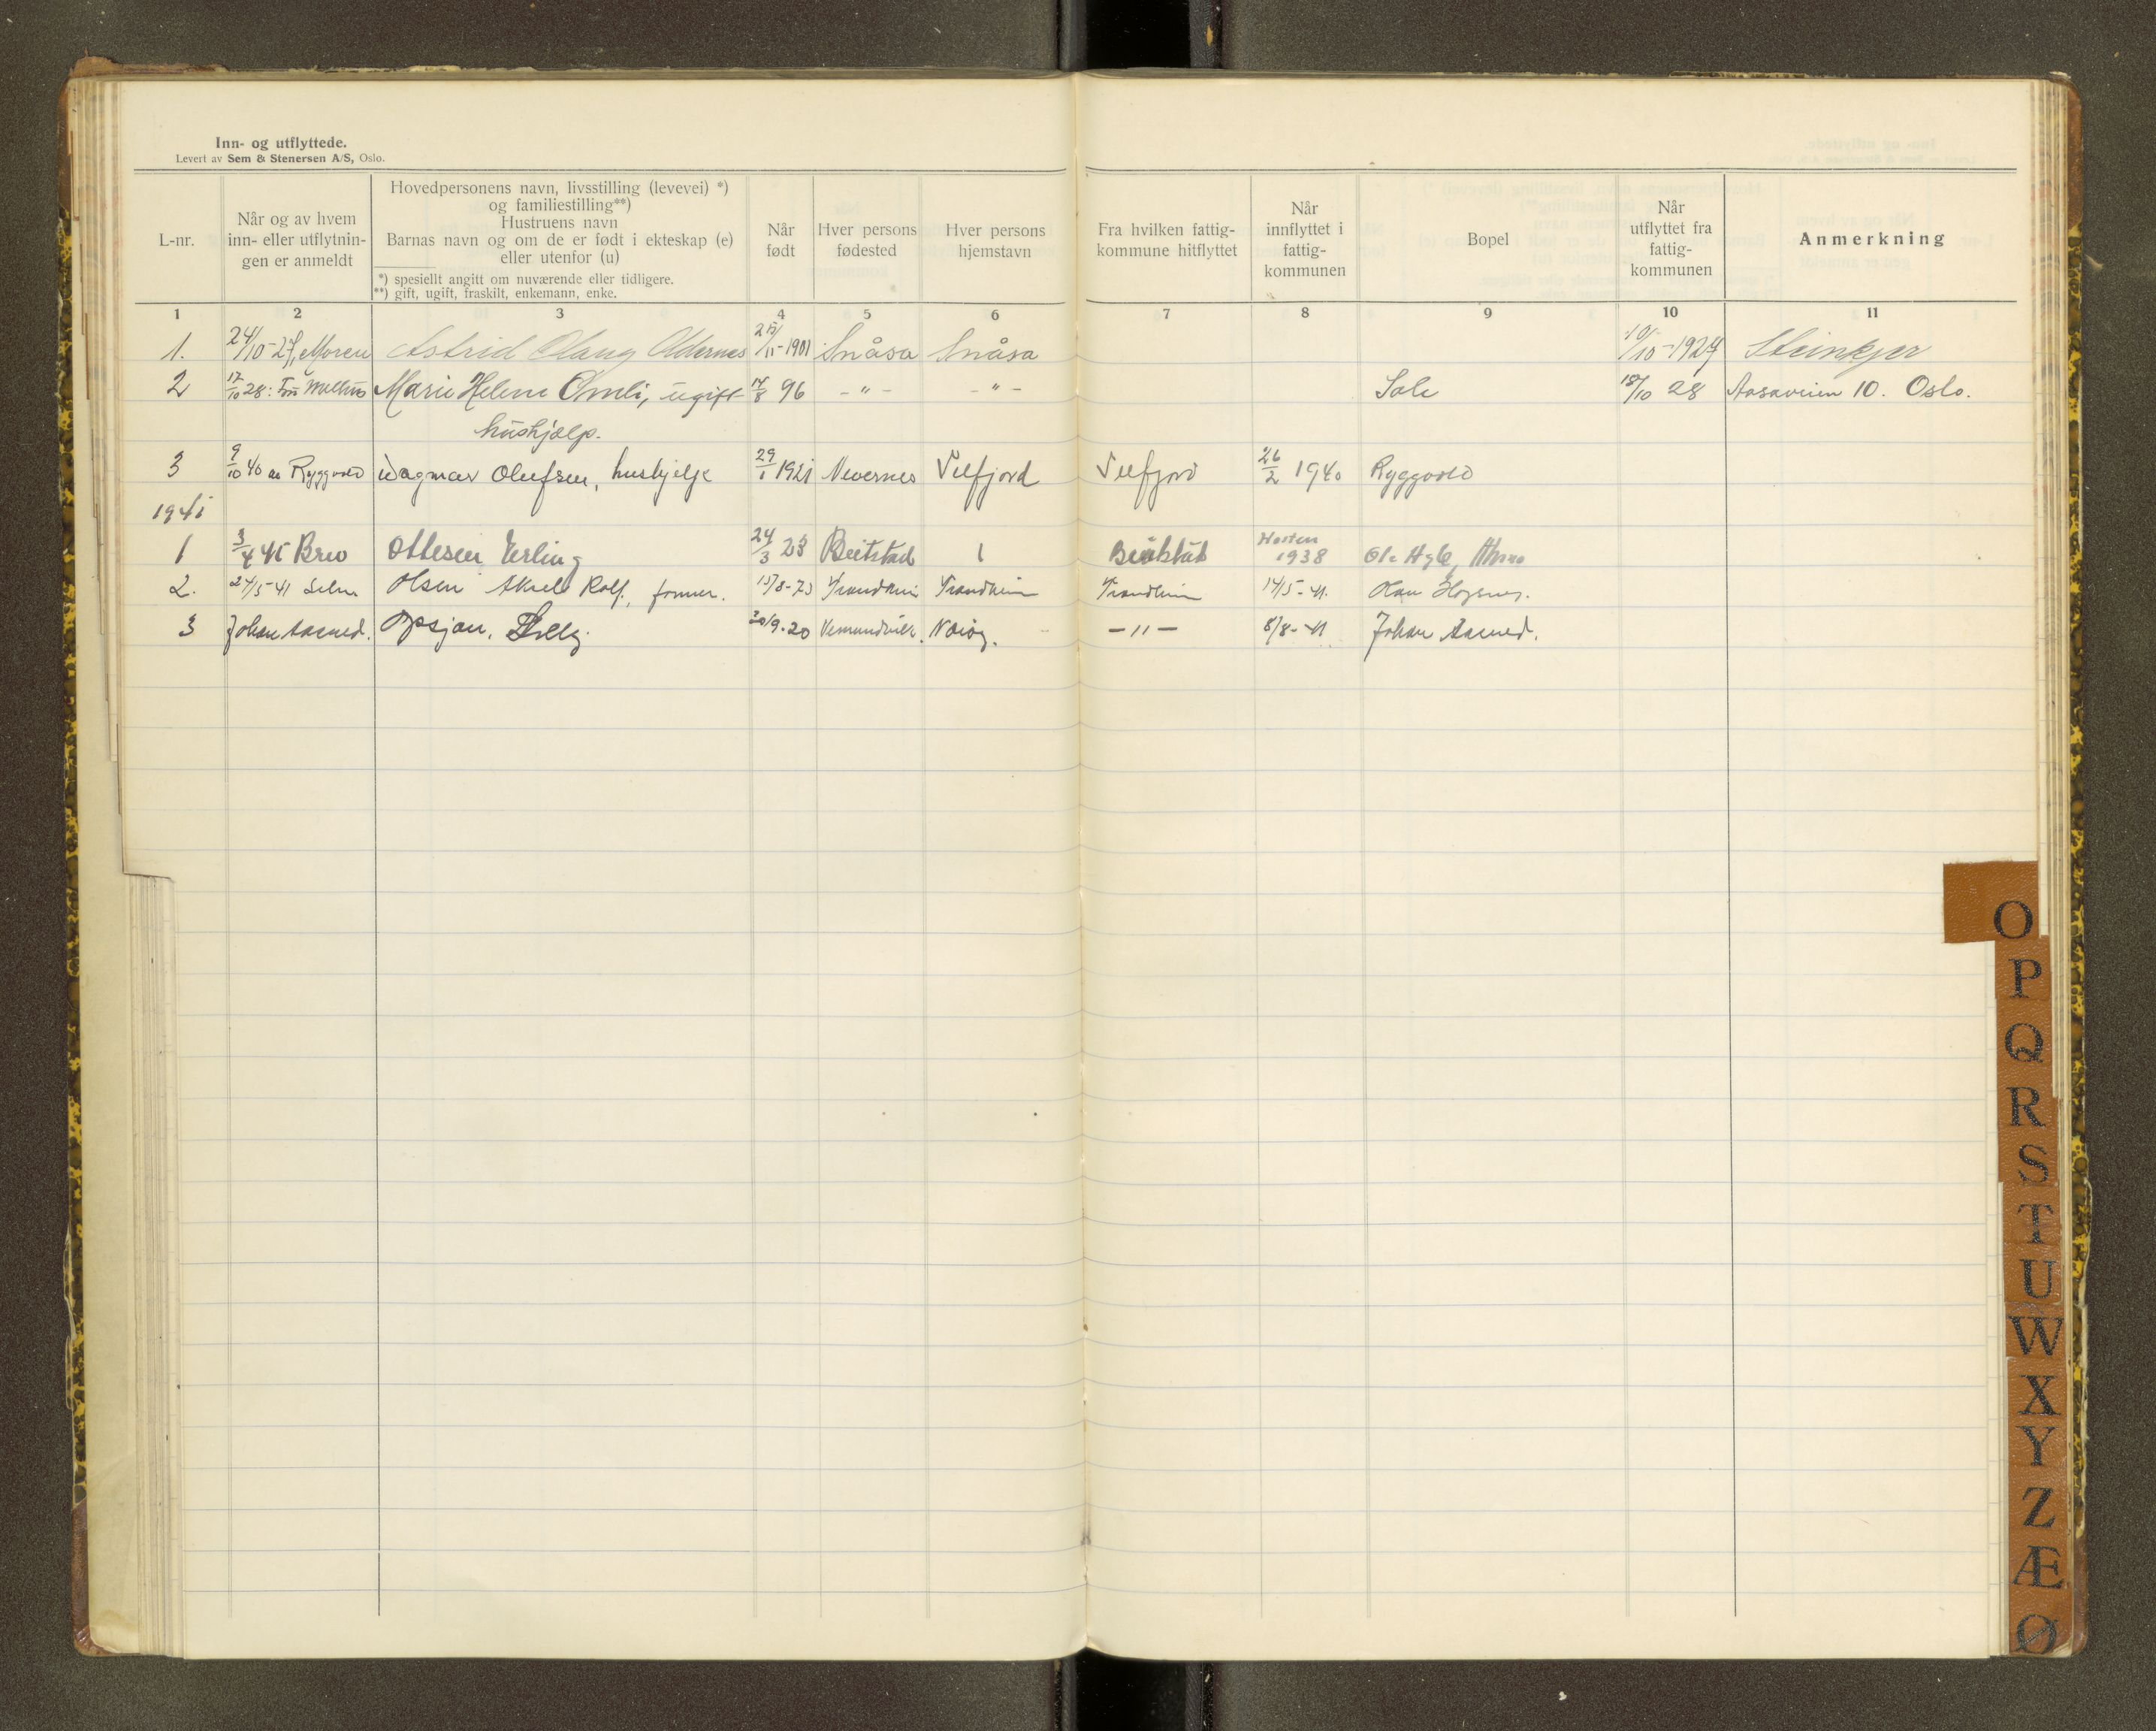 Inn- og utflyttede.
Levert av Sem & Stenersen A/S, Oslo.
L-nr.
Når og av hvem
inn- eller utflytnin-
gen er anmeldt
Hovedpersonens navn, livsstilling (levevei) *)
og familiestilling**)
Hustruens navn
Barnas navn og om de er født i ekteskap (e)
eller utenfor (u)
*) spesiellt angitt om nuværende eller tidligere.
**) gift, ugift, fraskilt, enkemann, enke.
Når
født
Hver persons
fødested
Hver persons
hjemstavn
Fra hvilken fattig-
kommune hitflyttet
Når
innflyttet i
fattig-
kommunen
Bopel
Når
utflyttet fra
fattig-
kommunen
Anmerkning
1 2 3 4 5 6 7 8 9 10 11
1. 24/10-27, Moren Astrid Olaug Oldernes 25/11-1901 Snåsa Snåsa 10/10-1927 Steinkjer
2 17/10 28: Marie Helene Omli, ugift 14/8 96 -"- -"- 18/10 28 Aasaveien 10. Oslo.
hushjælp.
3 9/10 40 Dagmar Olufsen, hushjelp 29/1 1921 Nevernes Velfjord Velfjord 26/2 1940 Ryggvold
1941
1 3/4 41 Brev Ottesen Erling 24/3 23 Beitstad 1 Beitstad Høsten
1938
2. 27/5-41 Olsen Rolf, 15/8-23 Trondheim Trondheim Trondheim 14/5-41.
3 Johan Aasned. Opsjøn, 30/9-20 -"- 8/8-41 Johan Aasned.
O
P
Q
R
S
T
U
W
X
Y
Z
Æ
Ø